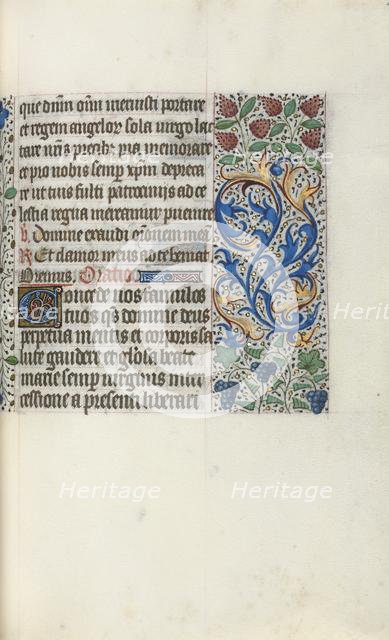 que dnm om meruisti portare
et regem angelor sola virgo lac
tare nra pia memorare
et pro nobis semp xpm depreca
re ut tuis fulti patrociniis ad ce
lestia regna mereamur puenire
v. Domine exaudi oronem meã
R Et clamor meus ad te veniat
Oremus Oratio
Concede nos famulos
tuos qs domine deus
perpetua mentis et corporis sa
nitate gaudere et gloriosa beate
marie semp virginis inter
cessione a presenti liberari
Heritage Heritage
Heritage Heritage